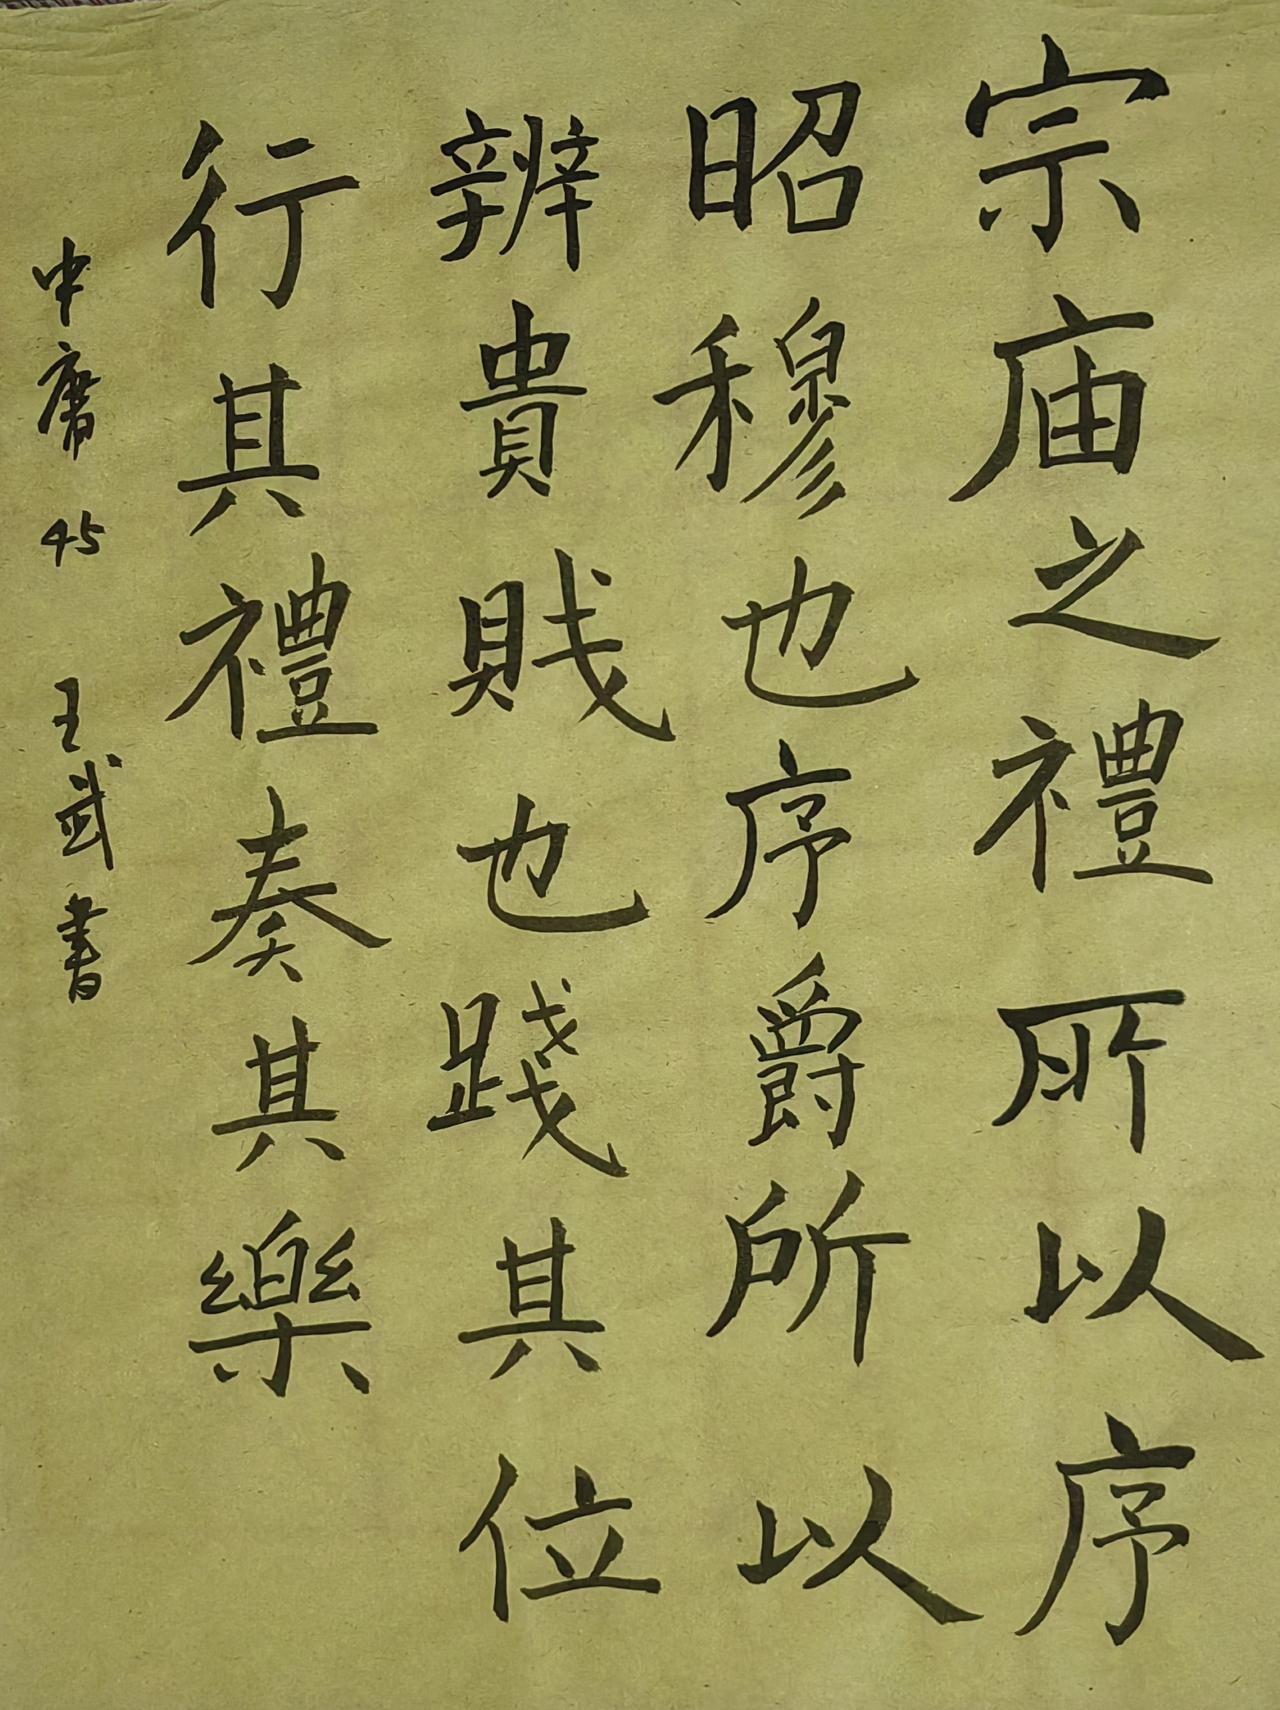 宗庙之禮所以序
昭穆也序爵所以
辨貴賤也踐其位
行其禮奏其樂
中庸 45 王武書